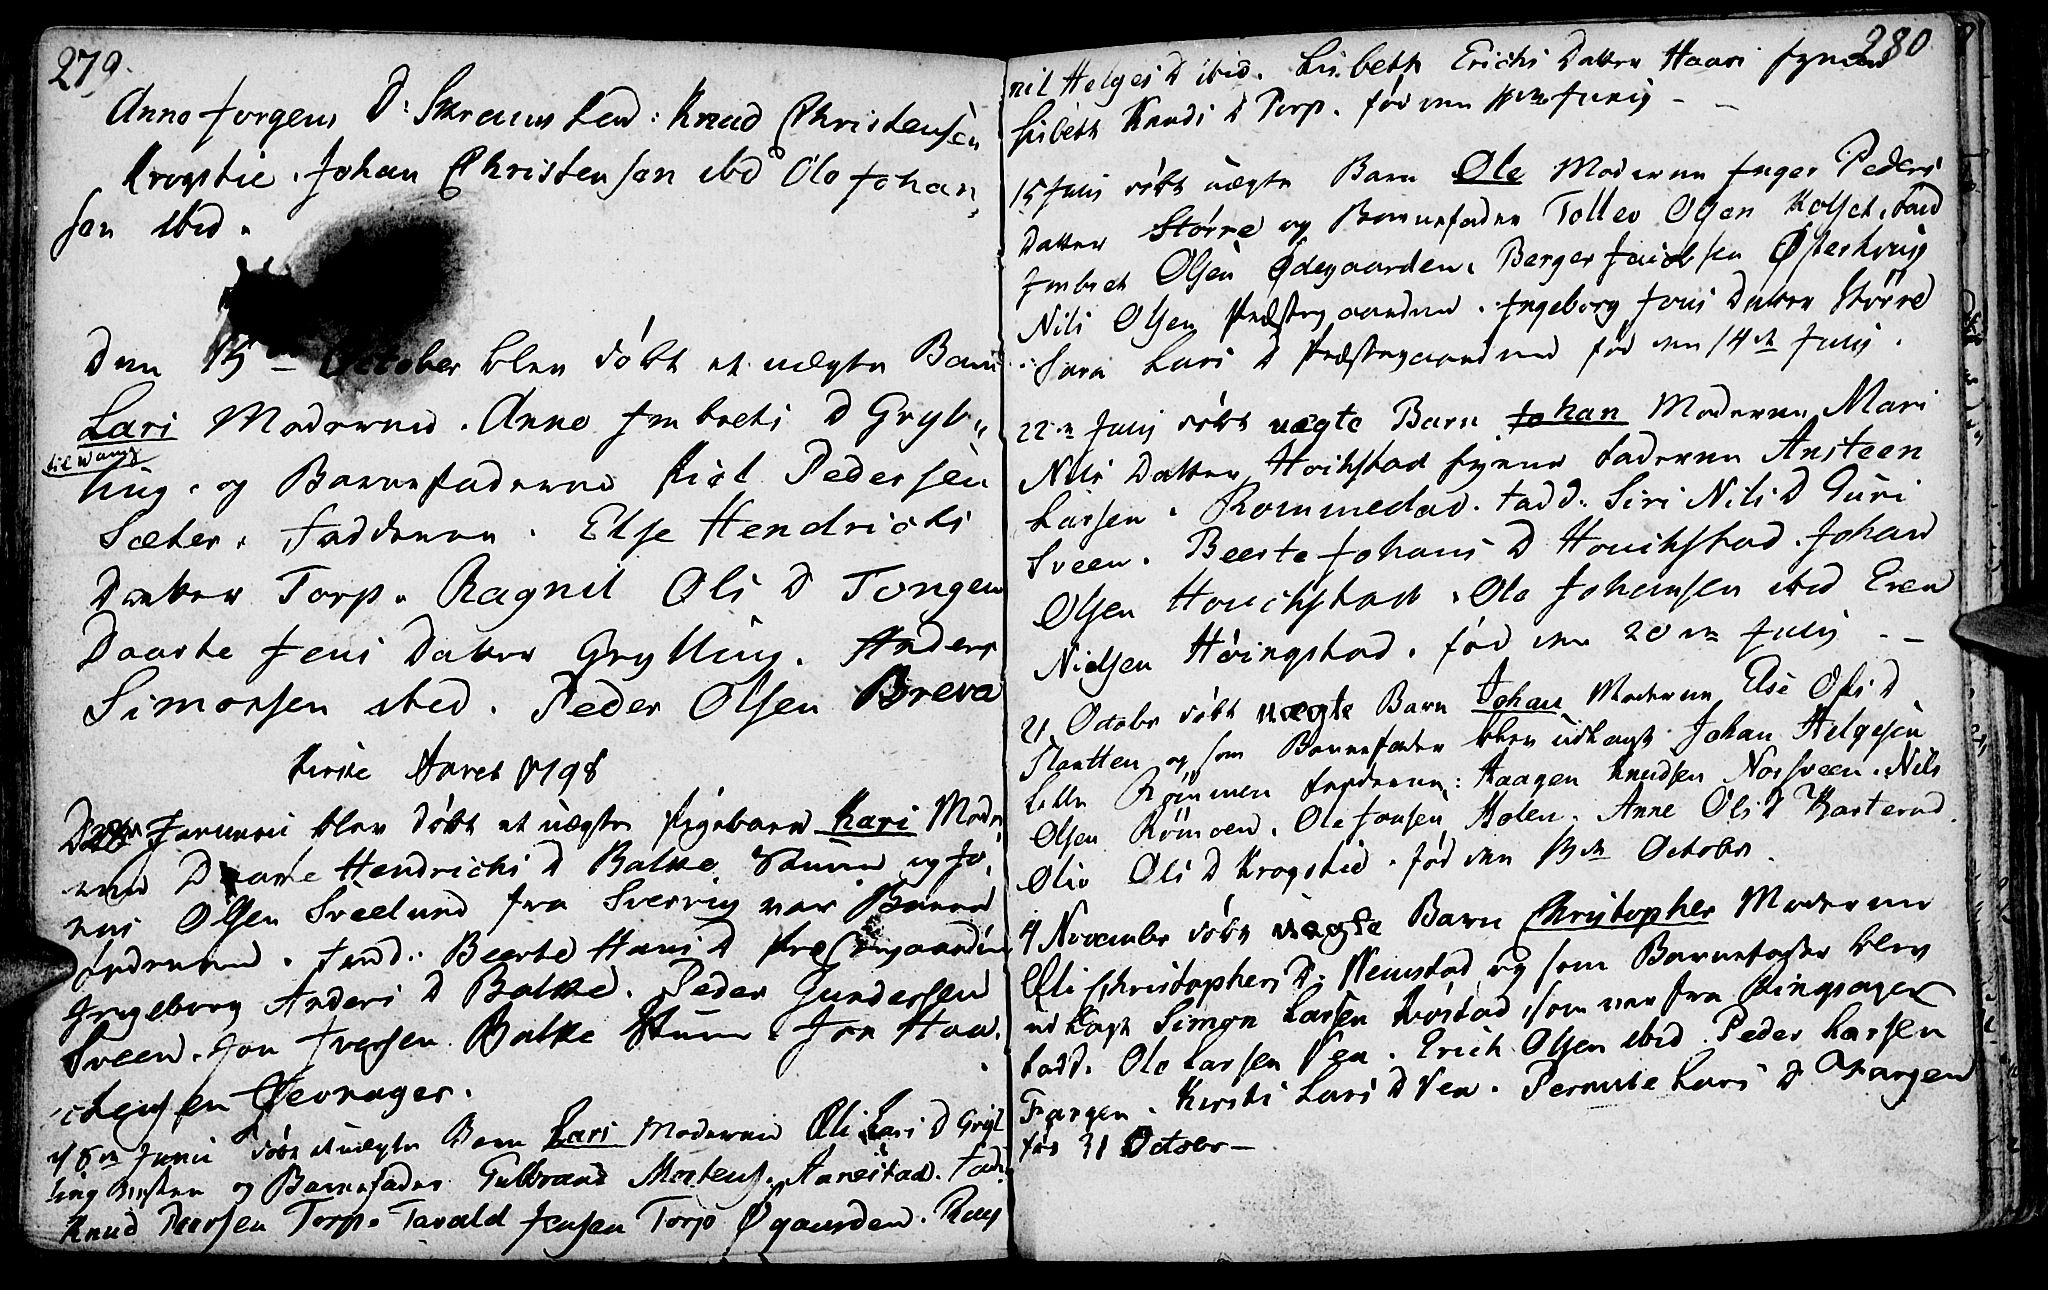 279
Anne Jorgens D: Skramstad: Knud Christensen
Krogstie. Johan Christensen ibid Ole Johan¬
sen ibid.
Den 15de October blev döbt et uægte Barn
Lars Moderen Anne Imbrets D Gryl¬
til Wang
ling. og Barnefaderen Kiel Pedersen
Sæter. Fadderne. Else Hendrichs
Datter Torp. Ragnil Ols D Tongen
Daarte Jens Datter Grylling. Anders
Simonsen ibid. Peder Olsen Breva
Kirke Aaret 1798
D 28 Januarii blev döbt et uægte Pigebarn Kari Mode¬
ren Daarte Hendrichs D Balke og Jo¬
nas Olsen Sveelund fra Sverrig var Barne
faderen. Fadd: Beerte Hans D Præstegaarden
Ingeborg Anders D Balke. Peder Gundersen
Sveen. Jon Iversen Balke. Jon Haa¬
chensen Gevrager.
d 8de Junii döbt et uægte Barn Lars Moderen Oli Lars D Gryl
ling og Barnefader Gulbrand Mortens. Aarestad. Fadd:
Knud Iversen Torp. Tavald Jensen Torp Øgaarden. Rag
280
nil Helges D ibid. Lisbeth Erichs Datter Haari
Lisbeth Knuds D Torp. föd den 1de Junij
15 Julij döbt uægte Barn Ole Moderen Inger Peders
Datter Större og Barnefader Tollev Olsen Kolset, Fadd
Imbret Olsen Ødegaarden. Berger Jacobsen Østerhaug
Nils Olsen Præstegaarden. Ingeborg Jons Datter Större
Sara Lars D Præstegaarden föd den 14de Julij.
22de Julij döbt uægte Barn Johan Moderen Mari
Nils Datter Hoichstad faderen Ansteen
Larsen. Rommedal. Fadd. Siri Nils D Guri
Sveen. Beerte Johans D Houchstad. Johan
Olsen Houchstad. Ole Johansen ibid Even
Nielsen Höingstad. föd den 20de Julij
21 Octobr döbt uægte Barn Johan Moderen Else Ols D
Slaatten og som Barnefader blev udlagt Johan Helgesen
Lille Römmen Fadderne: Haagen Knudsen Norsveen. Nils
Olsen Römoen. Ole Jonsen Holen. Anne Ols D Kasterud.
Oliv Ols D Krogstie. föd den 13de Octobr.
4 Novembr döbt uægte Barn Christopher Moderen
Oli Christophers D: Nemstad og som Barnefader blev
udlagt Simon Larsen Kvöstad, som var fra Ringsager
Fadd. Ole Larsen Ven. Erich Olsen ibid. Peder Larsen
Fargen. Kirsti Lars D Ven. Pernille Lars D Fargen
föd 31 Octobr